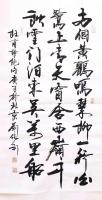 两個黄鸝鳴翠柳一行白
鷺上青天窗含西嶺千
秋雪门泊東吴萬里船
杜甫